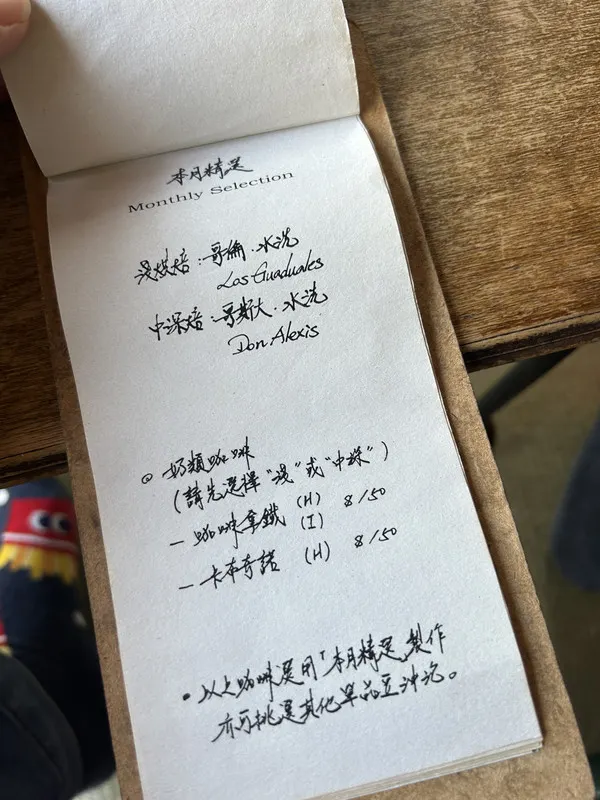 本月精選
Monthly Selection
淺烘焙：哥倫·水洗
Los Guaduales
中深焙：哥斯大·水洗
Don Alexis
◎ 奶類咖啡
（請先選擇“淺”或“中深”）
－咖啡拿鐵 (H) $150
(I)
－卡布奇諾 (H) $150
• 以上咖啡選用「本月精選」製作
亦可挑選其他單品豆沖泡。